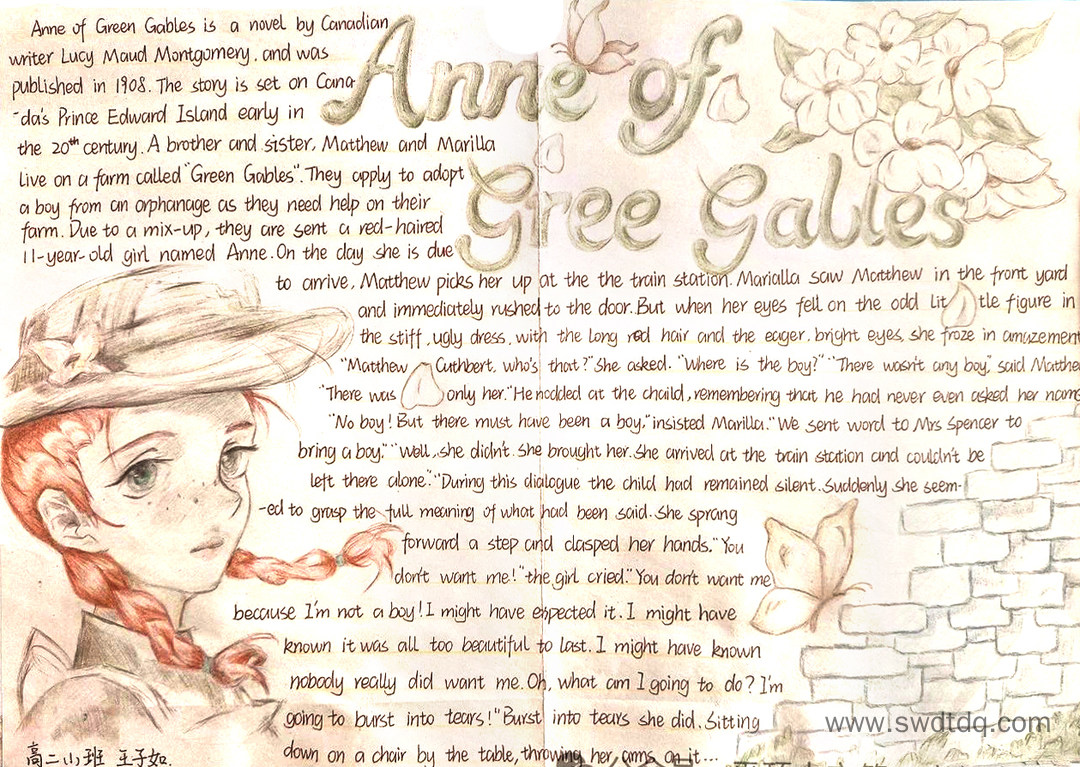 Anne of
Gree Gables
Anne of Green Gables is a novel by Canadian
writer Lucy Maud Montgomery, and was
published in 1908. The story is set on Cana
-da's Prince Edward Island early in
the 20th century. A brother and sister, Matthew and Marilla
live on a farm called "Green Gables". They apply to adopt
a boy from an orphanage as they need help on their
farm. Due to a mix-up, they are sent a red-haired
11-year-old girl named Anne. On the day she is due
to arrive, Matthew picks her up at the the train station. Marialla saw Matthew in the front yard
and immediately rushed to the door. But when her eyes fell on the odd lit tle figure in
the stiff, ugly dress, with the long red hair and the eager, bright eyes, she froze in amazement
"Matthew Cuthbert, who's that?" She asked. "Where is the boy?" "There wasn't any boy," said Matthe
"There was only her." He nodded at the chaild, remembering that he had never even asked her name
"No boy! But there must have been a boy," insisted Marilla. "We sent word to Mrs Spencer to
bring a boy." "Well, she didn't. She brought her. She arrived at the train station and couldn't be
left there alone." "During this dialogue the child had remained silent. Suddenly she seem-
-ed to grasp the full meaning of what had been said. She sprang
forward a step and clasped her hands. "You
don't want me!" the girl cried. "You don't want me
because I'm not a boy! I might have expected it. I might have
known it was all too beautiful to last. I might have known
nobody really did want me. Oh, what am I going to do? I'm
going to burst into tears!" Burst into tears she did. Sitting
down on a chair by the table, throwing her arms on it...
高二小班 王子如.
www.swdtdq.com